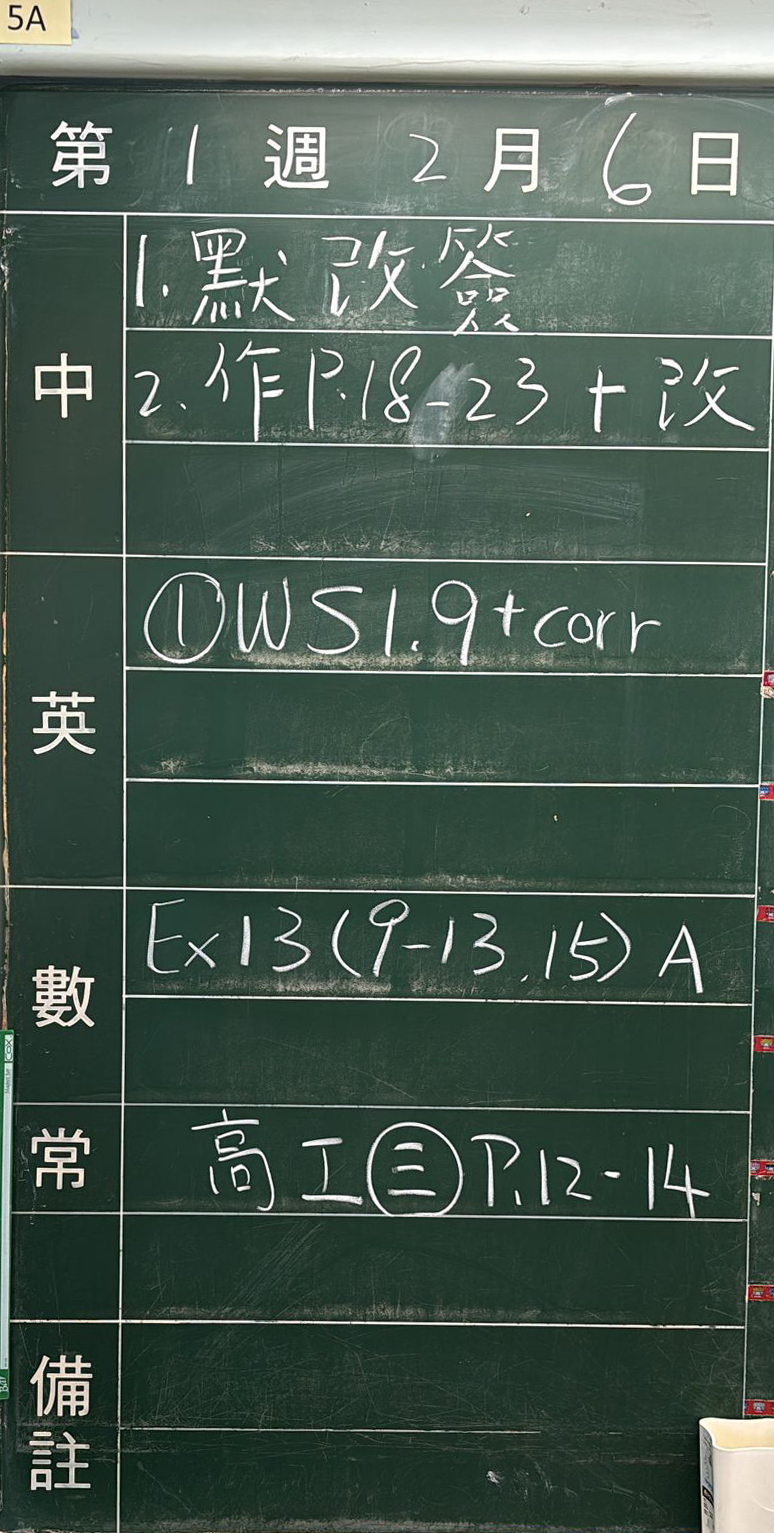 5A
第 1 週 2 月 6 日
中
1. 默改簽
2. 作P.18-23+改
英
①WS1.9+corr
數
Ex13(9-13,15) A
常
高工㊂P.12-14
備註